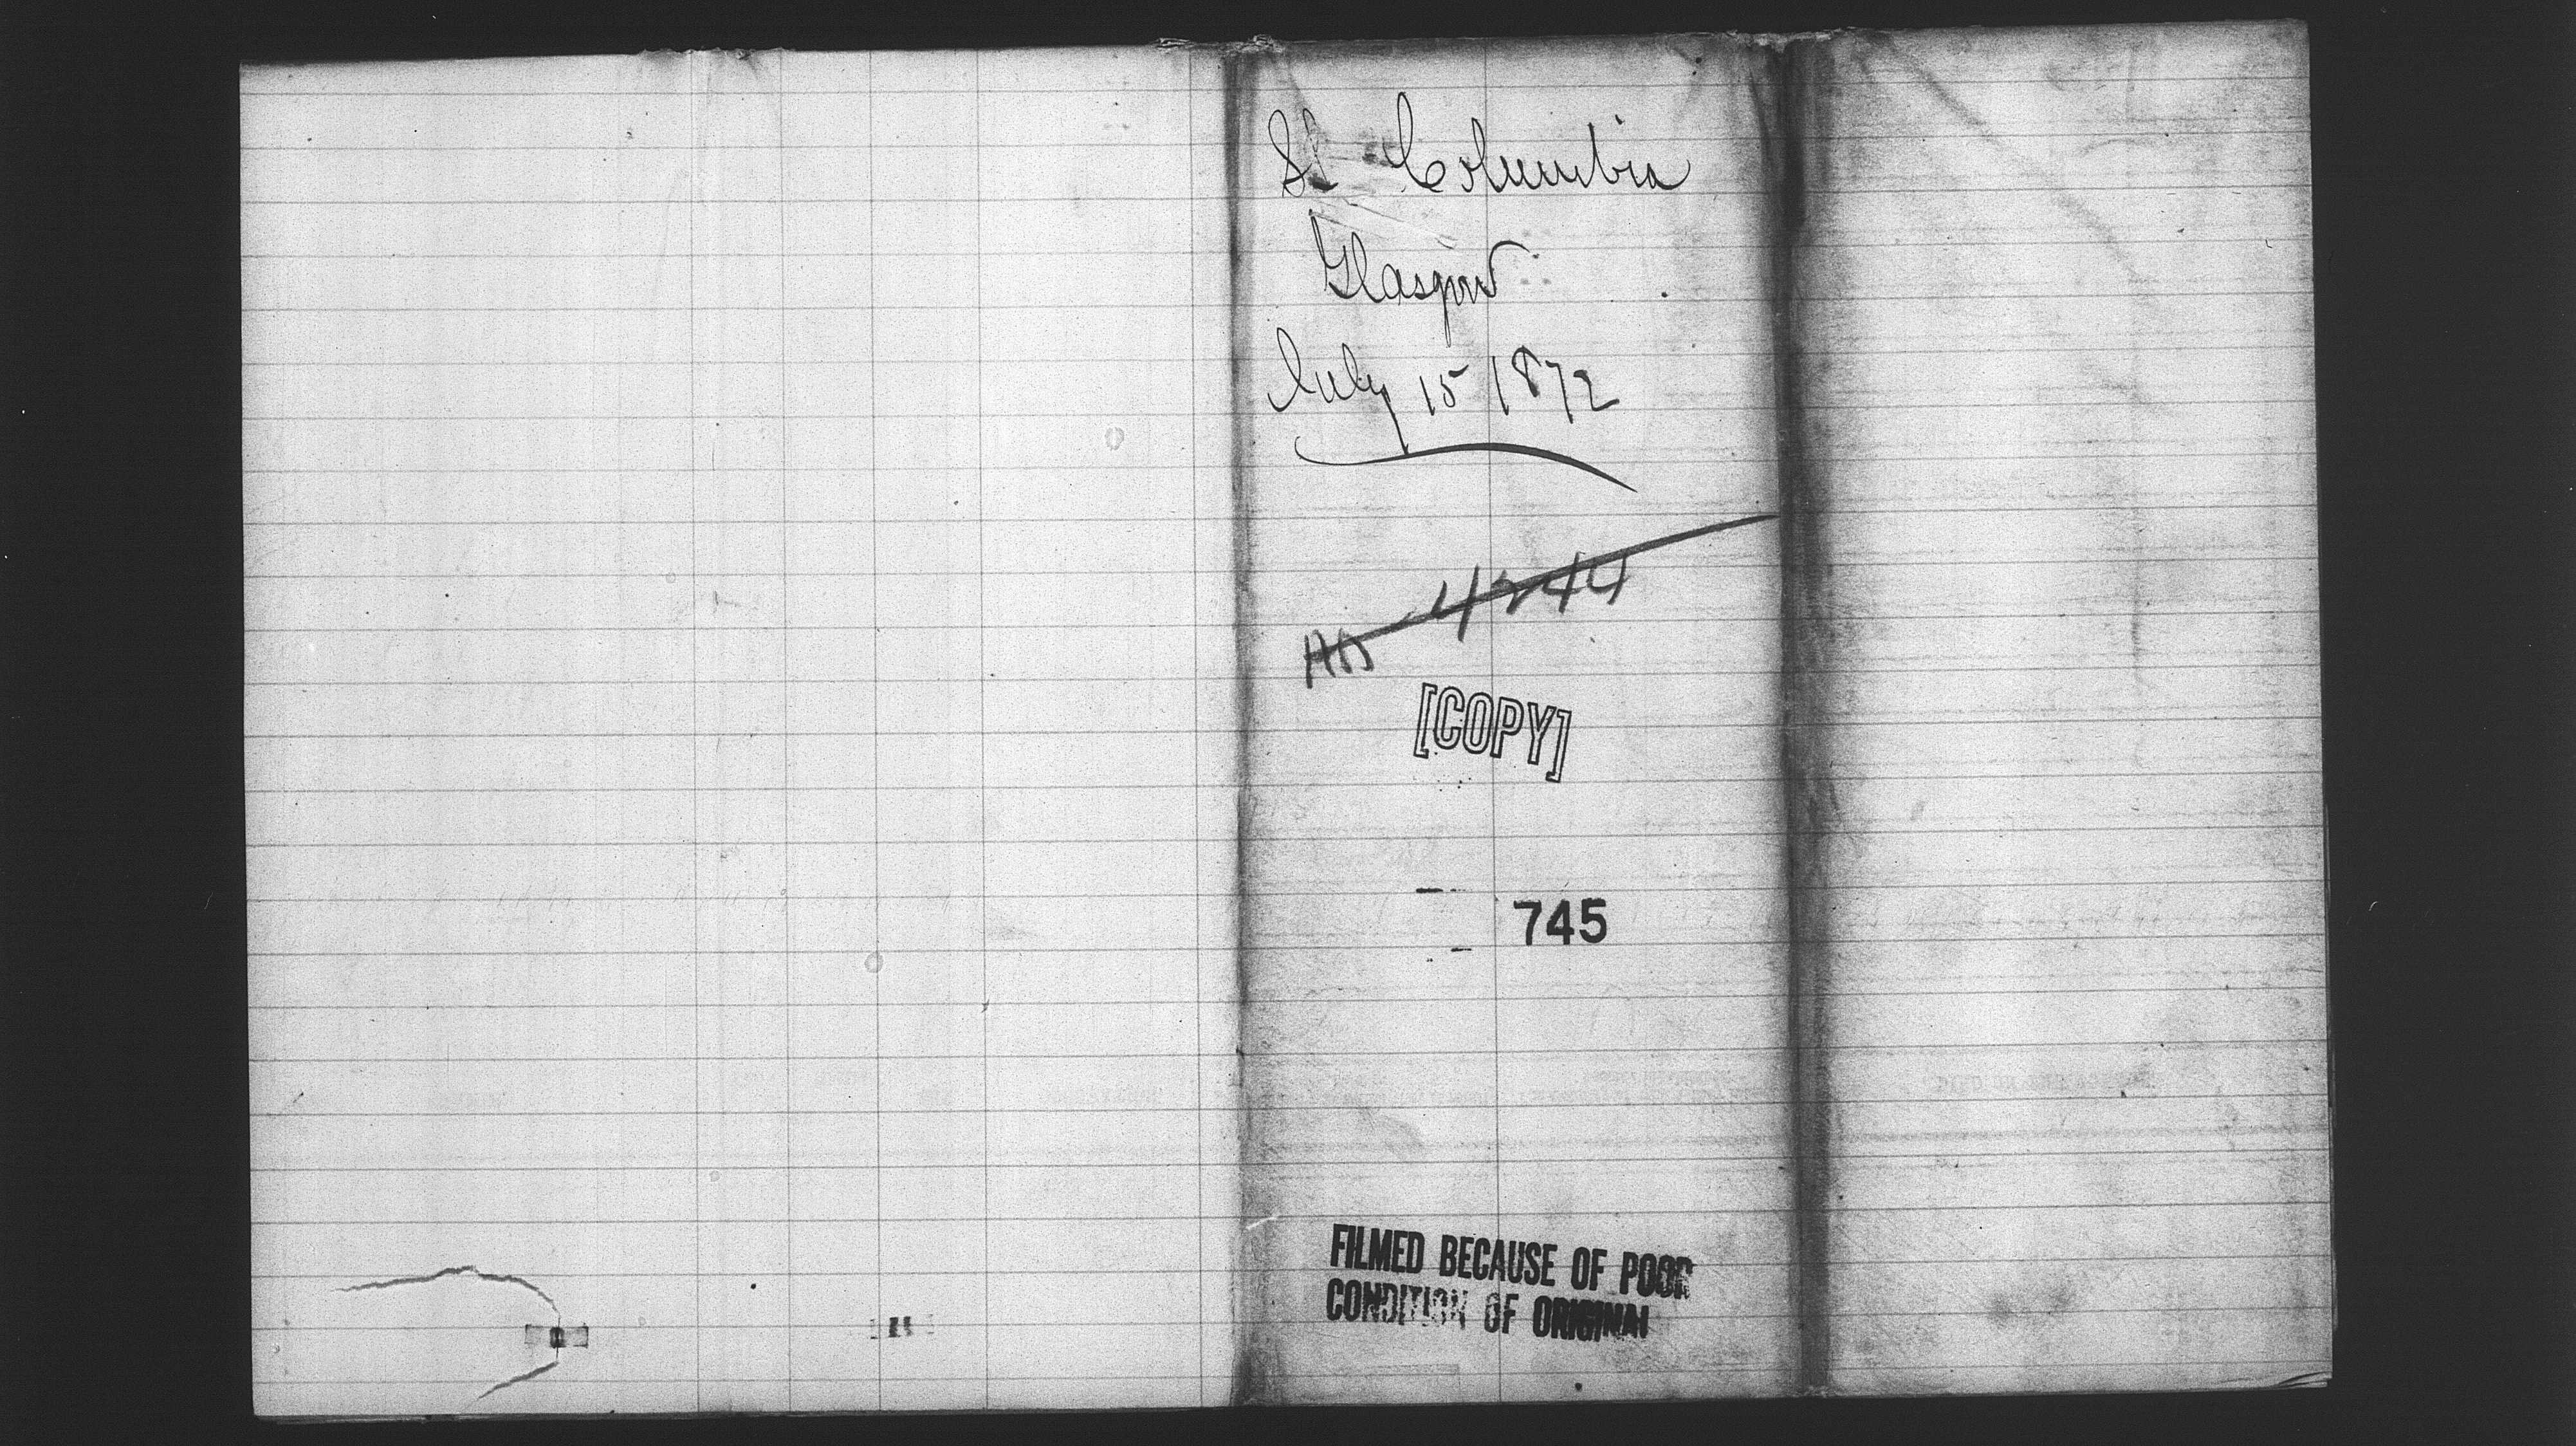 SS Columbia
Glasgow
July 15 1872
4244
[COPY]
745
FILMED BECAUSE OF POOR
CONDITION OF ORIGINAL